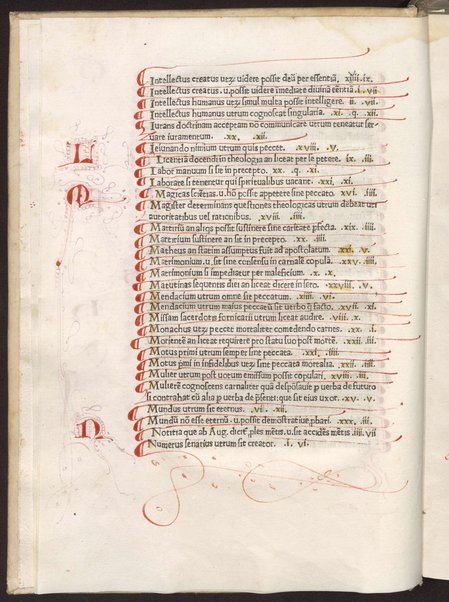 Intellectus creatus utrum videre possit deū per essentiā. xiiii .ix.
Intellectus creatus .u. possit videre īmediate divinā eēntiā .i. vii.
Intellectus humanus utrum simul multa possit intelligere. ii. vii.
Intellectus humanus utrum cognoscat singularia. xi. q. xii.
Iurans doctrinam acceptam nō communicare utrum teneatur ser-
vare iuramentum. xx. xii.
Ieiunando nimium utrum quis peccet. xviii. v.
L
Licentiā docendi in theologia an liceat per se petere. ix. iiii.
Labor manuum si sit in precepto. xx. q. xi.
Laborare si tenentur qui spiritualibus vacant. xxi. xi.
M
Magister determinans questiones theologicas utrum debeat uti
auctoritatibus vel rationibus. xviii. iiii.
Martiriū an aliqs possit sustinere sine caritate pfecta. xix. iiii.
Martirium sustinere an sit in precepto. xx. iiii.
Matheus an statim assumptus fuit ad apostolatum. xxi. v.
Matrimonium .u. sit sine consensu in carnalē copulā. xxv. v.
Matrimonium si impediatur per maleficium. x. x.
Matutinas sequentis diei an liceat dicere in sero. xxviii. v.
Mendacium utrum omne sit peccatum. xiiii. vi.
Mendacium utrum maius peccatū sit verbo q̄ facto. xvii. xi.
Missam sacerdotis fornicarii utrum liceat audire. viii. x.
Monachus utrum peccet mortaliter comedendo carnes. xx. i.
Morientē an liceat requirere pro statu suo post mortē. xxii. iii.
Motus primi utrum semper sint peccata. xxi. iiii.
Motus primi in infidelibus utrum sint peccata mortalia. xxii. iiii.
Mulier utrum post votum emissum possit copulari. xviii. iii.
Mulierē cognoscens carnaliter quā desposavit p verba de futuro
si contrahat cū alia p verba de psenti: que sit eius uxor. xv. v.
Mundus utrum sit eternus. vi. xii.
Mundū nō esse eternū .u. possit demonstrative pbari. xxx. iii.
N
Notitia que ab Aug. dicit ples mētis .u. sit accidēs mētis .iiii. vii
Numerus senarius utrum sit creator. i. vi.